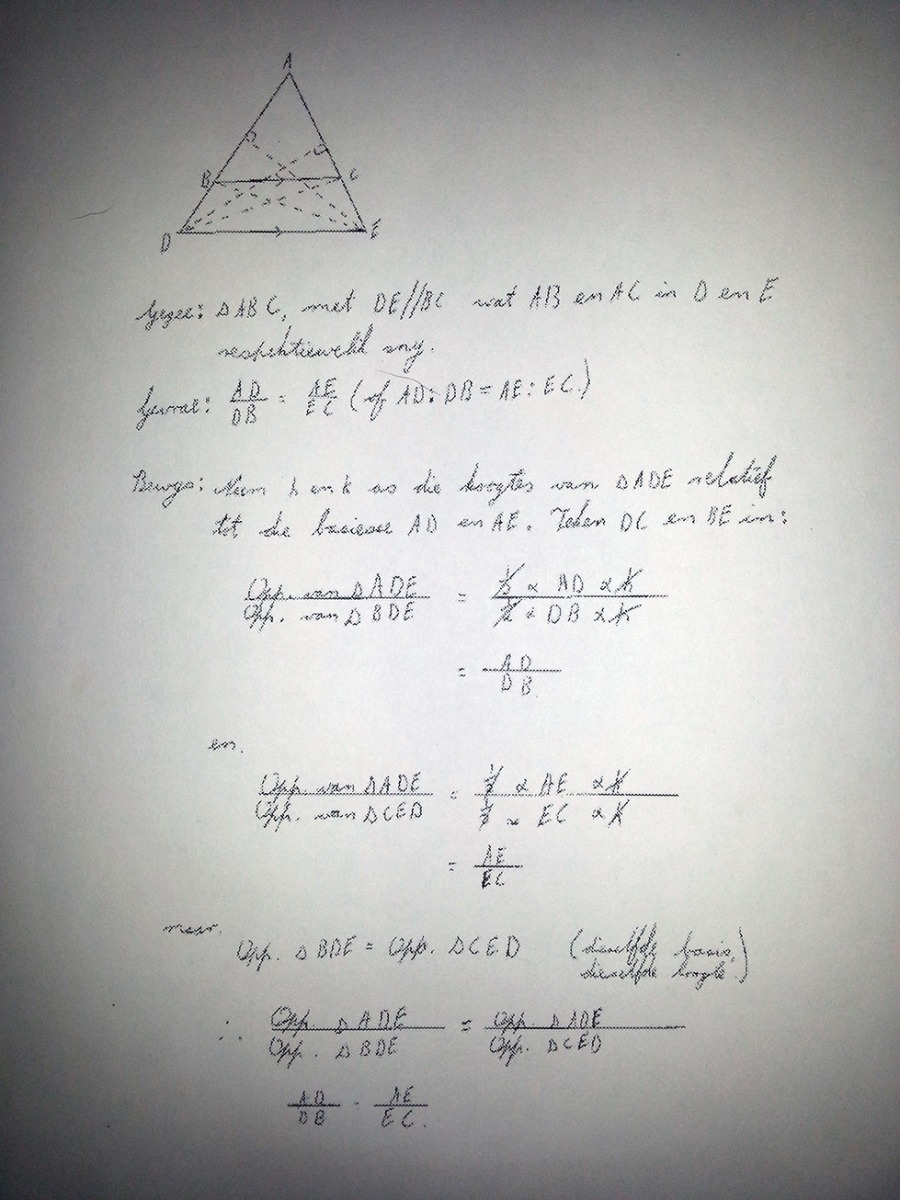 A
B C
D E
Gegee: ΔABC, met DE//BC wat AB en AC in D en E
respektiewelik sny.
Gevra: AD/DB = AE/EC (of AD:DB = AE:EC.)
Bewys: Neem h en k as die hoogtes van ΔADE relatief
tot die basisse AD en AE. Teken DC en BE in:
Opp. van ΔADE / Opp. van ΔBDE = ½ x AD x h / ½ x DB x h
= AD/DB
en.
Opp. van ΔADE / Opp. van ΔCED = ½ x AE x k / ½ x EC x k
= AE/EC
maar.
Opp. ΔBDE = Opp. ΔCED (dieselfde basis,
dieselfde hoogte.)
∴ Opp. ΔADE / Opp. ΔBDE = Opp. ΔADE / Opp. ΔCED
AD/DB = AE/EC.